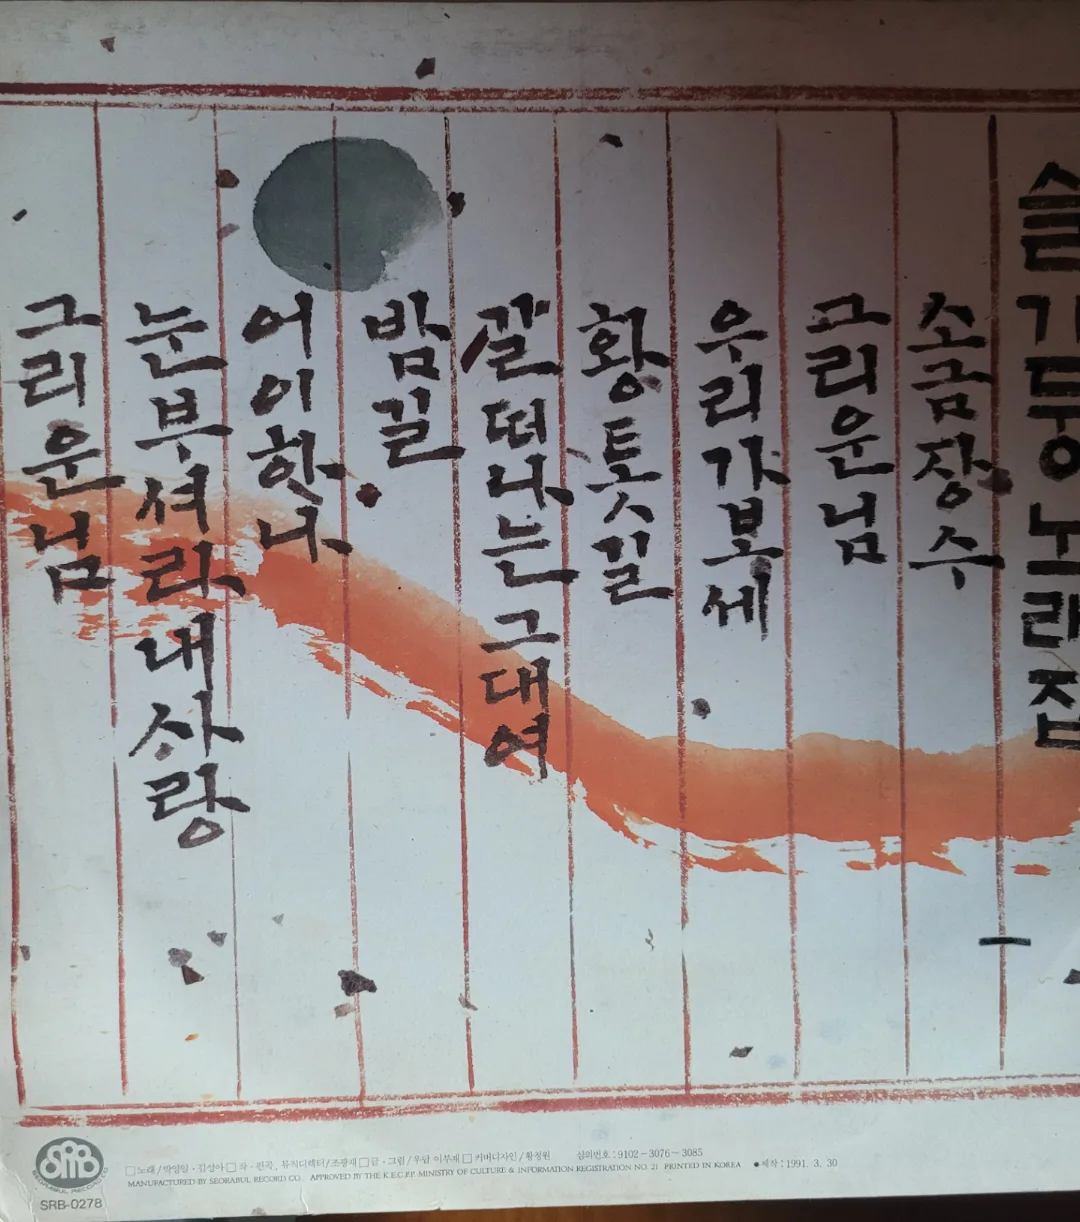 슬기둥노래집
一
소금장수
그리운님
우리가보세
황톳길
떠나는그대여
밤길
어이하나
눈부셔라내사랑
그리운님
SRB
SEORABUL RECORD CO.
SRB-0278
□노래/박영일·김성아□작·편곡, 뮤직디렉터/조광재□글·그림/우담 이부재□커버디자인/황정원 심의번호:9102-3076-3085
MANUFACTURED BY SEORABUL RECORD CO. APPROVED BY THE K.E.C.P.P. MINISTRY OF CULTURE & INFORMATION REGISTRATION NO. 21 PRINTED IN KOREA ●제작:1991. 3. 30